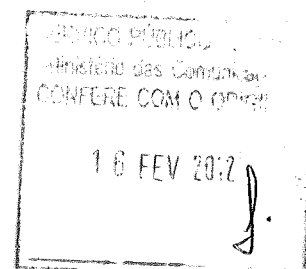 SERVIÇO PÚBLICO
Ministério das Comunica
CONFERE COM O ORIGI
16 FEV 2012